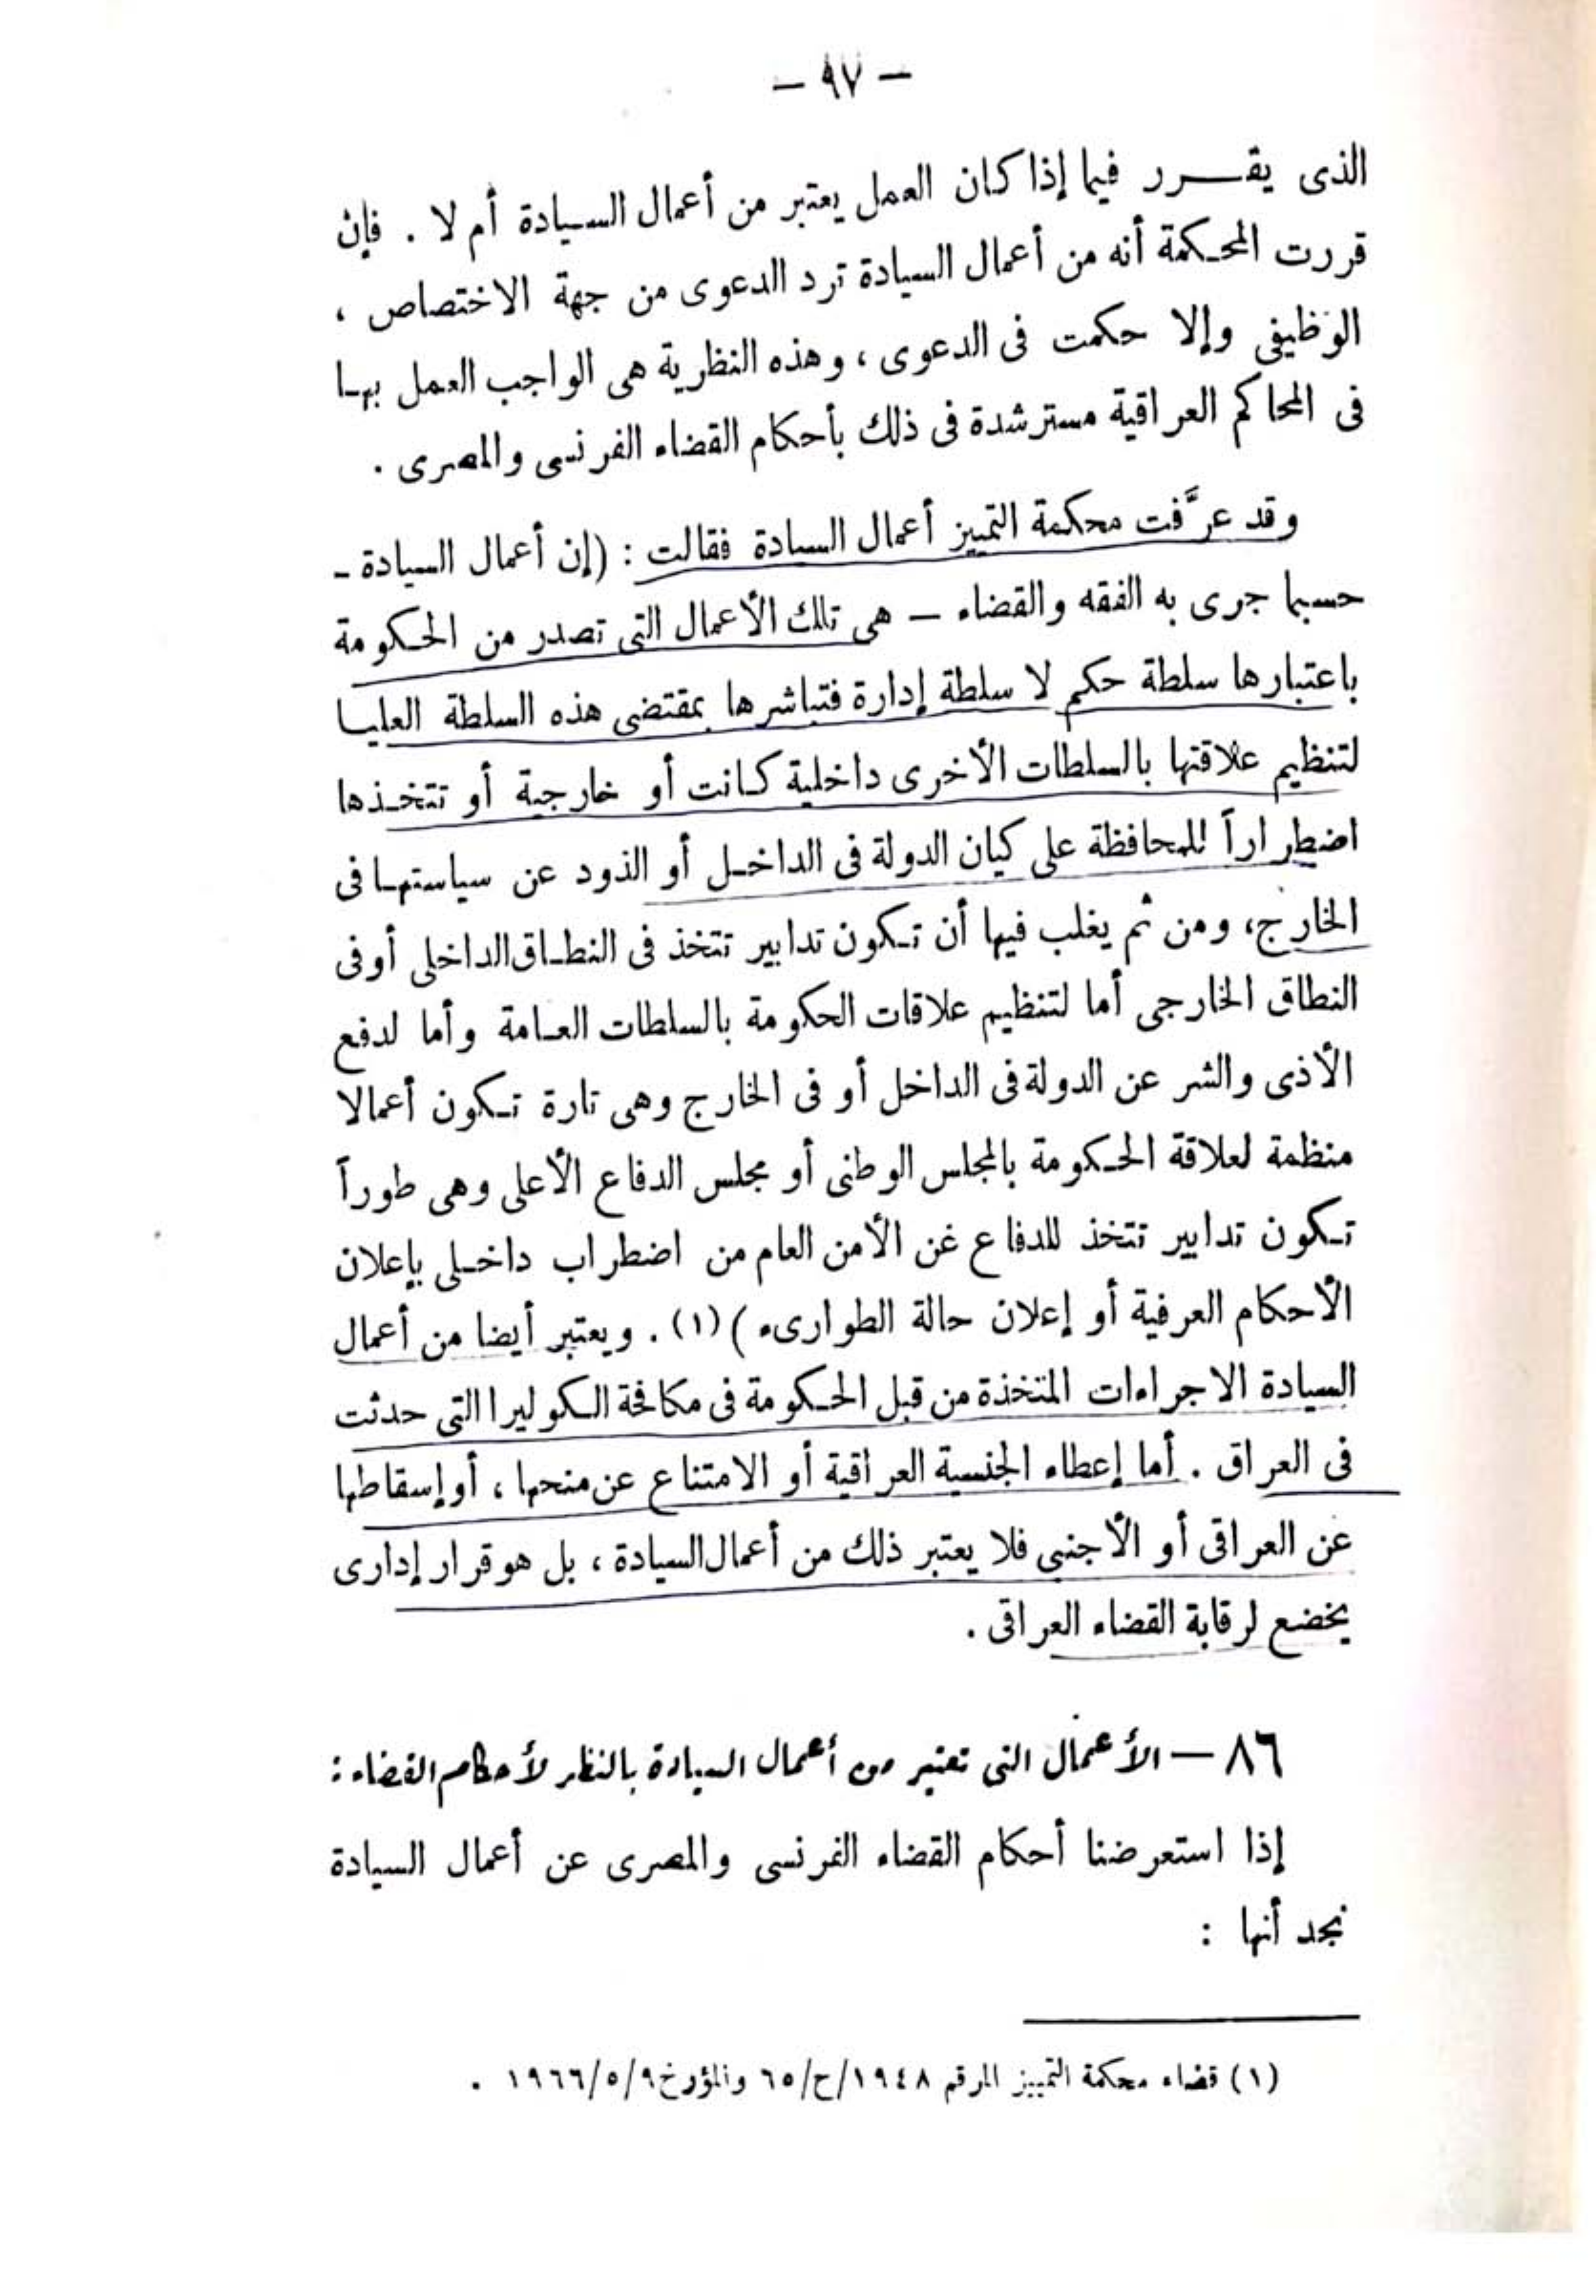 - ٩٧ -
الذى يقـــرر فيما إذا كان العمل يعتبر من أعمال السيادة أم لا . فإن
قررت المحكمة أنه من أعمال السيادة ترد الدعوى من جهة الاختصاص ،
الوظيفى وإلا حكمت فى الدعوى ، وهذه النظرية هى الواجب العمل بها
فى المحاكم العراقية مسترشدة فى ذلك بأحكام القضاء الفرنسى والمصرى .
وقد عرَّفت محكمة التمييز أعمال السيادة فقالت : (إن أعمال السيادة -
حسبما جرى به الفقه والقضاء — هى تلك الأعمال التى تصدر من الحكومة
باعتبارها سلطة حكم لا سلطة إدارة فتباشرها بمقتضى هذه السلطة العليا
لتنظيم علاقتها بالسلطات الأخرى داخلية كانت أو خارجية أو تتخذها
اضطراراً للمحافظة على كيان الدولة فى الداخل أو الذود عن سياستها فى
الخارج، ومن ثم يغلب فيها أن تكون تدابير تتخذ فى النطاق الداخلى أو فى
النطاق الخارجى أما لتنظيم علاقات الحكومة بالسلطات العامة وأما لدفع
الأذى والشر عن الدولة فى الداخل أو فى الخارج وهى تارة تكون أعمالا
منظمة لعلاقة الحكومة بالمجلس الوطنى أو مجلس الدفاع الأعلى وهى طوراً
تكون تدابير تتخذ للدفاع غن الأمن العام من اضطراب داخلى بإعلان
الأحكام العرفية أو إعلان حالة الطوارىء ) (١) . ويعتبر أيضا من أعمال
السيادة الاجراءات المتخذة من قبل الحكومة فى مكافحة الكوليرا التى حدثت
فى العراق . أما إعطاء الجنسية العراقية أو الامتناع عن منحها ، أو إسقاطها
عن العراقى أو الأجنبى فلا يعتبر ذلك من أعمال السيادة ، بل هو قرار إدارى
يخضع لرقابة القضاء العراقى .
٨٦ — الأعمال التى تعتبر من أعمال السيادة بالنظر لأحكام القضاء :
إذا استعرضنا أحكام القضاء الفرنسى والمصرى عن أعمال السيادة
نجد أنها :
(١) قضاء محكمة التمييز المرقم ١٩٤٨/ح/٦٥ والمؤرخ ١٩٦٦/٥/٩ .